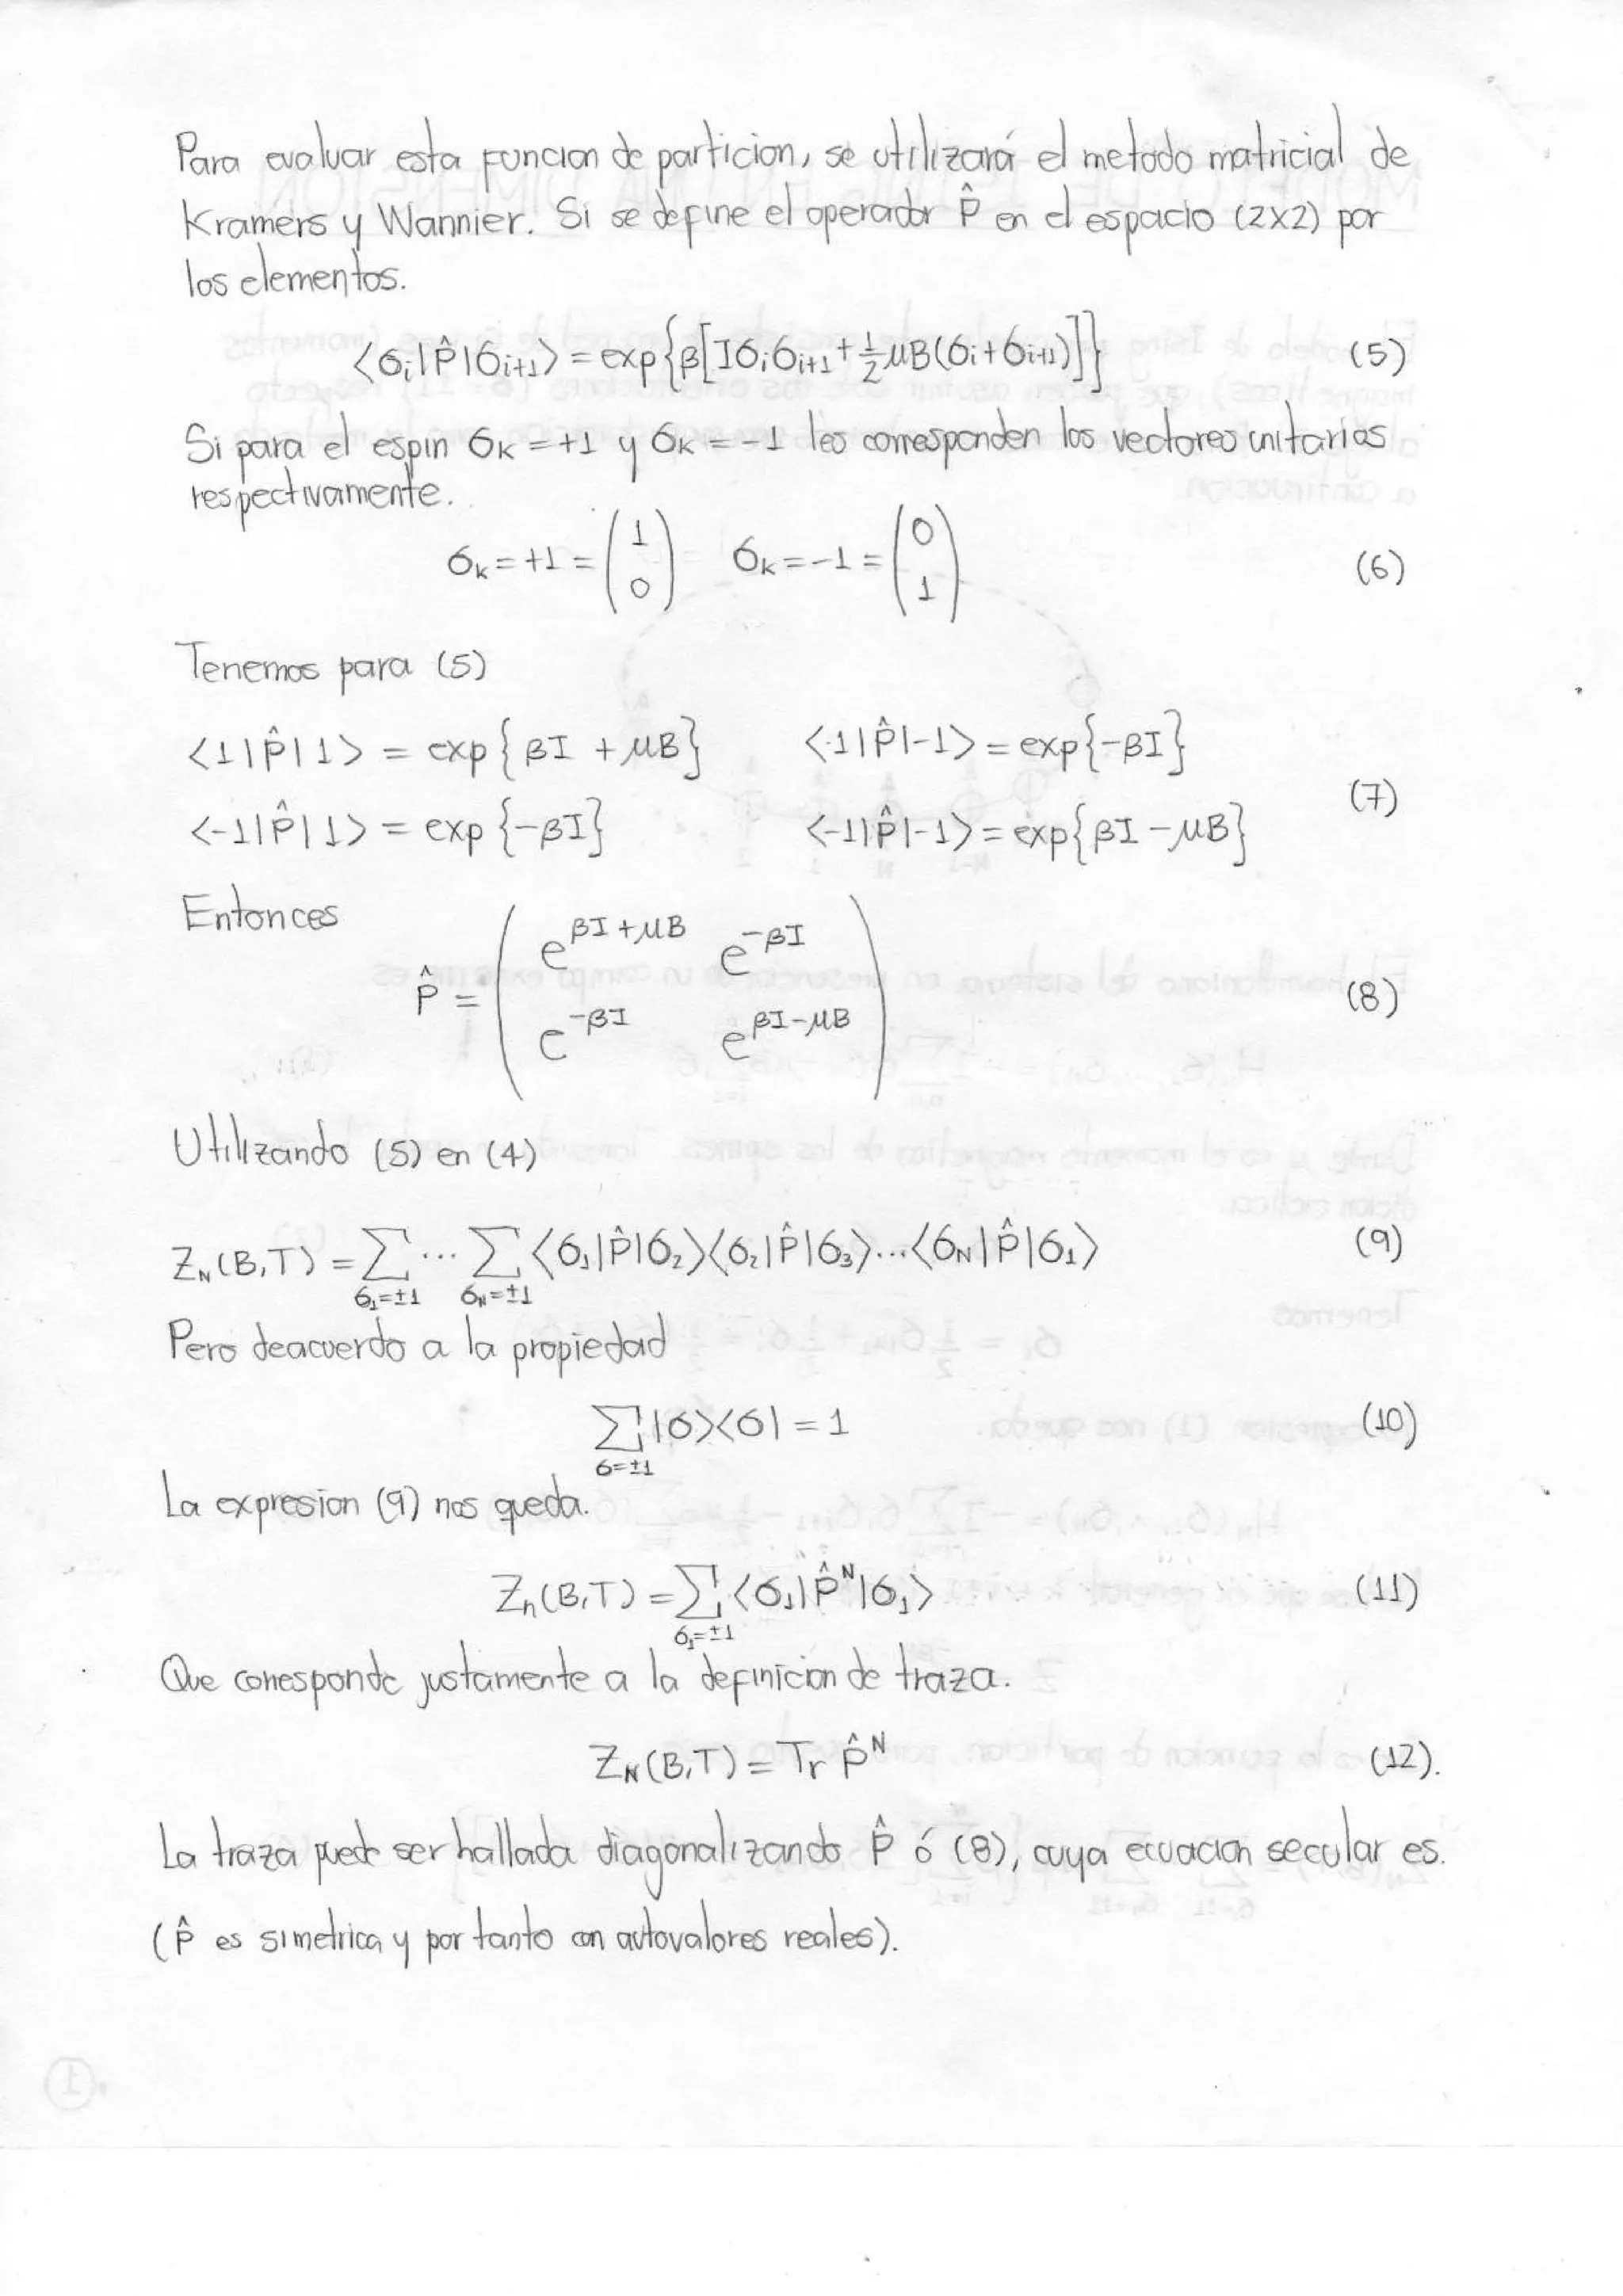 Para evaluar esta funcion de particion, se utilizará el metodo matricial de
Kramers y Wannier. Si se define el operador P̂ en el espacio (2x2) por
los elementos.
⟨σi|P̂|σi+1⟩ = exp{β[Iσiσi+1 + 1/2 μB(σi+σi+1)]} (5)
Si para el espin σk = +1 y σk = -1 les corresponden los vectores unitarios
respectivamente.
σk = +1 = (1 0) σk = -1 = (0 1) (6)
Tenemos para (5)
⟨1|P̂|1⟩ = exp{βI + μB} ⟨1|P̂|-1⟩ = exp{-βI}
(7)
⟨-1|P̂|1⟩ = exp{-βI} ⟨-1|P̂|-1⟩ = exp{βI - μB}
Entonces
e^βI+μB e^-βI
P̂ = (8)
e^-βI e^βI-μB
Utilizando (5) en (4)
ZN(B,T) = Σ ... Σ ⟨σ1|P̂|σ2⟩⟨σ2|P̂|σ3⟩...⟨σN|P̂|σ1⟩ (9)
σ1=±1 σN=±1
Pero deacuerdo a la propiedad
Σ|σ⟩⟨σ| = 1 (10)
σ=±1
La expresion (9) nos queda.
Zn(B,T) = Σ ⟨σ1|P̂^N|σ1⟩ (11)
σ1=±1
Que corresponde justamente a la definicion de traza.
ZN(B,T) = Tr P̂^N (12).
La traza puede ser hallada diagonalizando P̂ ó (8), cuya ecuacion secular es.
(P̂ es simetrica y por tanto con autovalores reales).